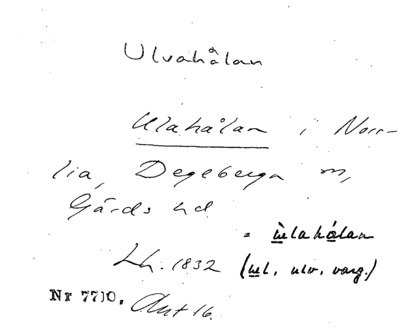 Ulvahålan
Ulahålan i Norr-
lia, Degeberga sn,
Gärds hd
= ùlahálan
Lh. 1832 (ul, ulv, varg.)
Nr 7710. Akt 16.